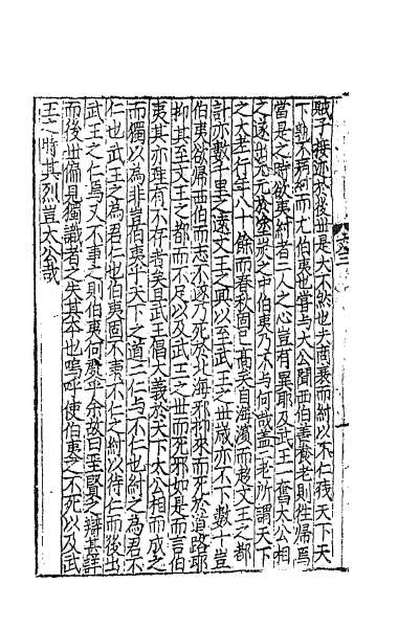 賊子接迹於後世是大不然也夫商衰而紂以不仁殘天下天
下孰不病紂而尤伯夷也嘗與太公聞西伯善養老則往歸焉
當是之時欲夷紂者二人之心豈有異耶及武王一奮太公相
之遂出元元於塗炭之中伯夷乃不與何哉蓋二老所謂天下
之大老行年八十餘而春秋固已高矣自海濱而趨文王之都
計亦數千里之遠文王之興以至武王之世歲亦不下數十豈
伯夷欲歸西伯而志不遂乃死於北海邪抑來而死於道路耶
抑其至文王之都而不足以及武王之世而死邪如是而言伯
夷其亦理有不存者矣且武王倡大義於天下太公相而成之
而獨以為非豈伯夷乎天下之道二仁與不仁也紂之為君不
仁也武王之為君仁也伯夷固不事不仁之紂以待仁而後出
武王之仁焉又不事之則伯夷何處乎余故曰聖賢之辯甚詳
而後世偏見獨識者之失其本也嗚呼使伯夷之不死以及武
王之時其烈豈太公哉